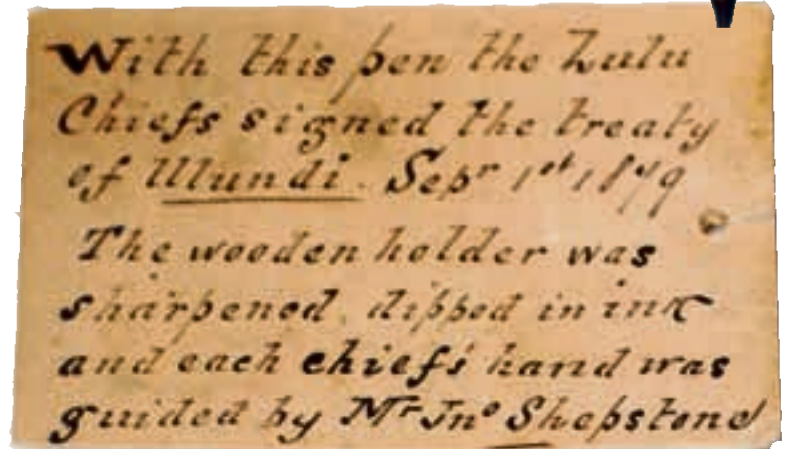 With this pen the Zulu
Chiefs signed the treaty
of Ulundi. Sepr 1st 1879
The wooden holder was
sharpened, dipped in ink
and each chiefs hand was
guided by Mr Jno Shepstone